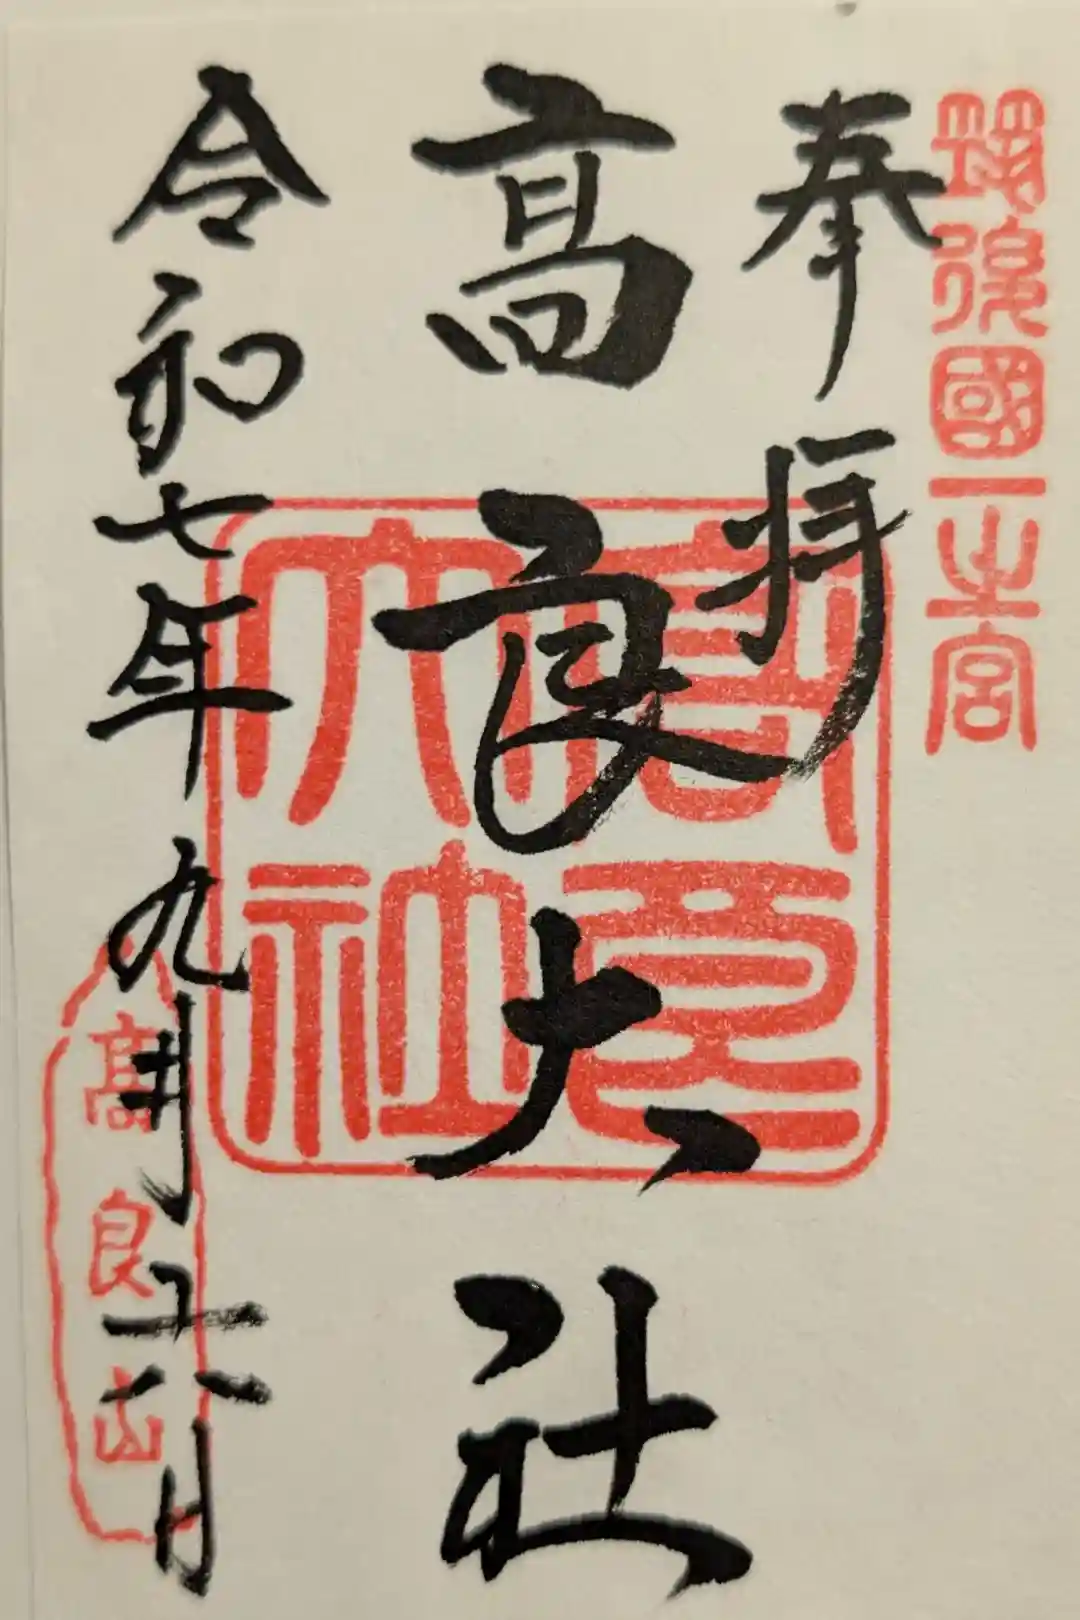 筑後國一之宮
奉拝
高良大社
高良
大社
令和七年九月十六日
高良山